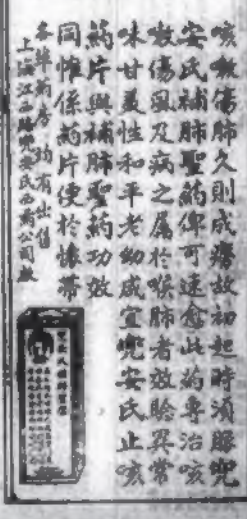 咳嗽傷肺久則成癆故初起時須服兜
安氏補肺聖藥俾可速愈此藥專治咳
嗽傷風及病之屬於喉肺者效驗異常
味甘美性和平老幼咸宜兜安氏止咳
藥片與補肺聖藥功效
同惟係藥片便於懷帶
各埠藥房均有出售
上海江西路兜安氏西藥公司啟